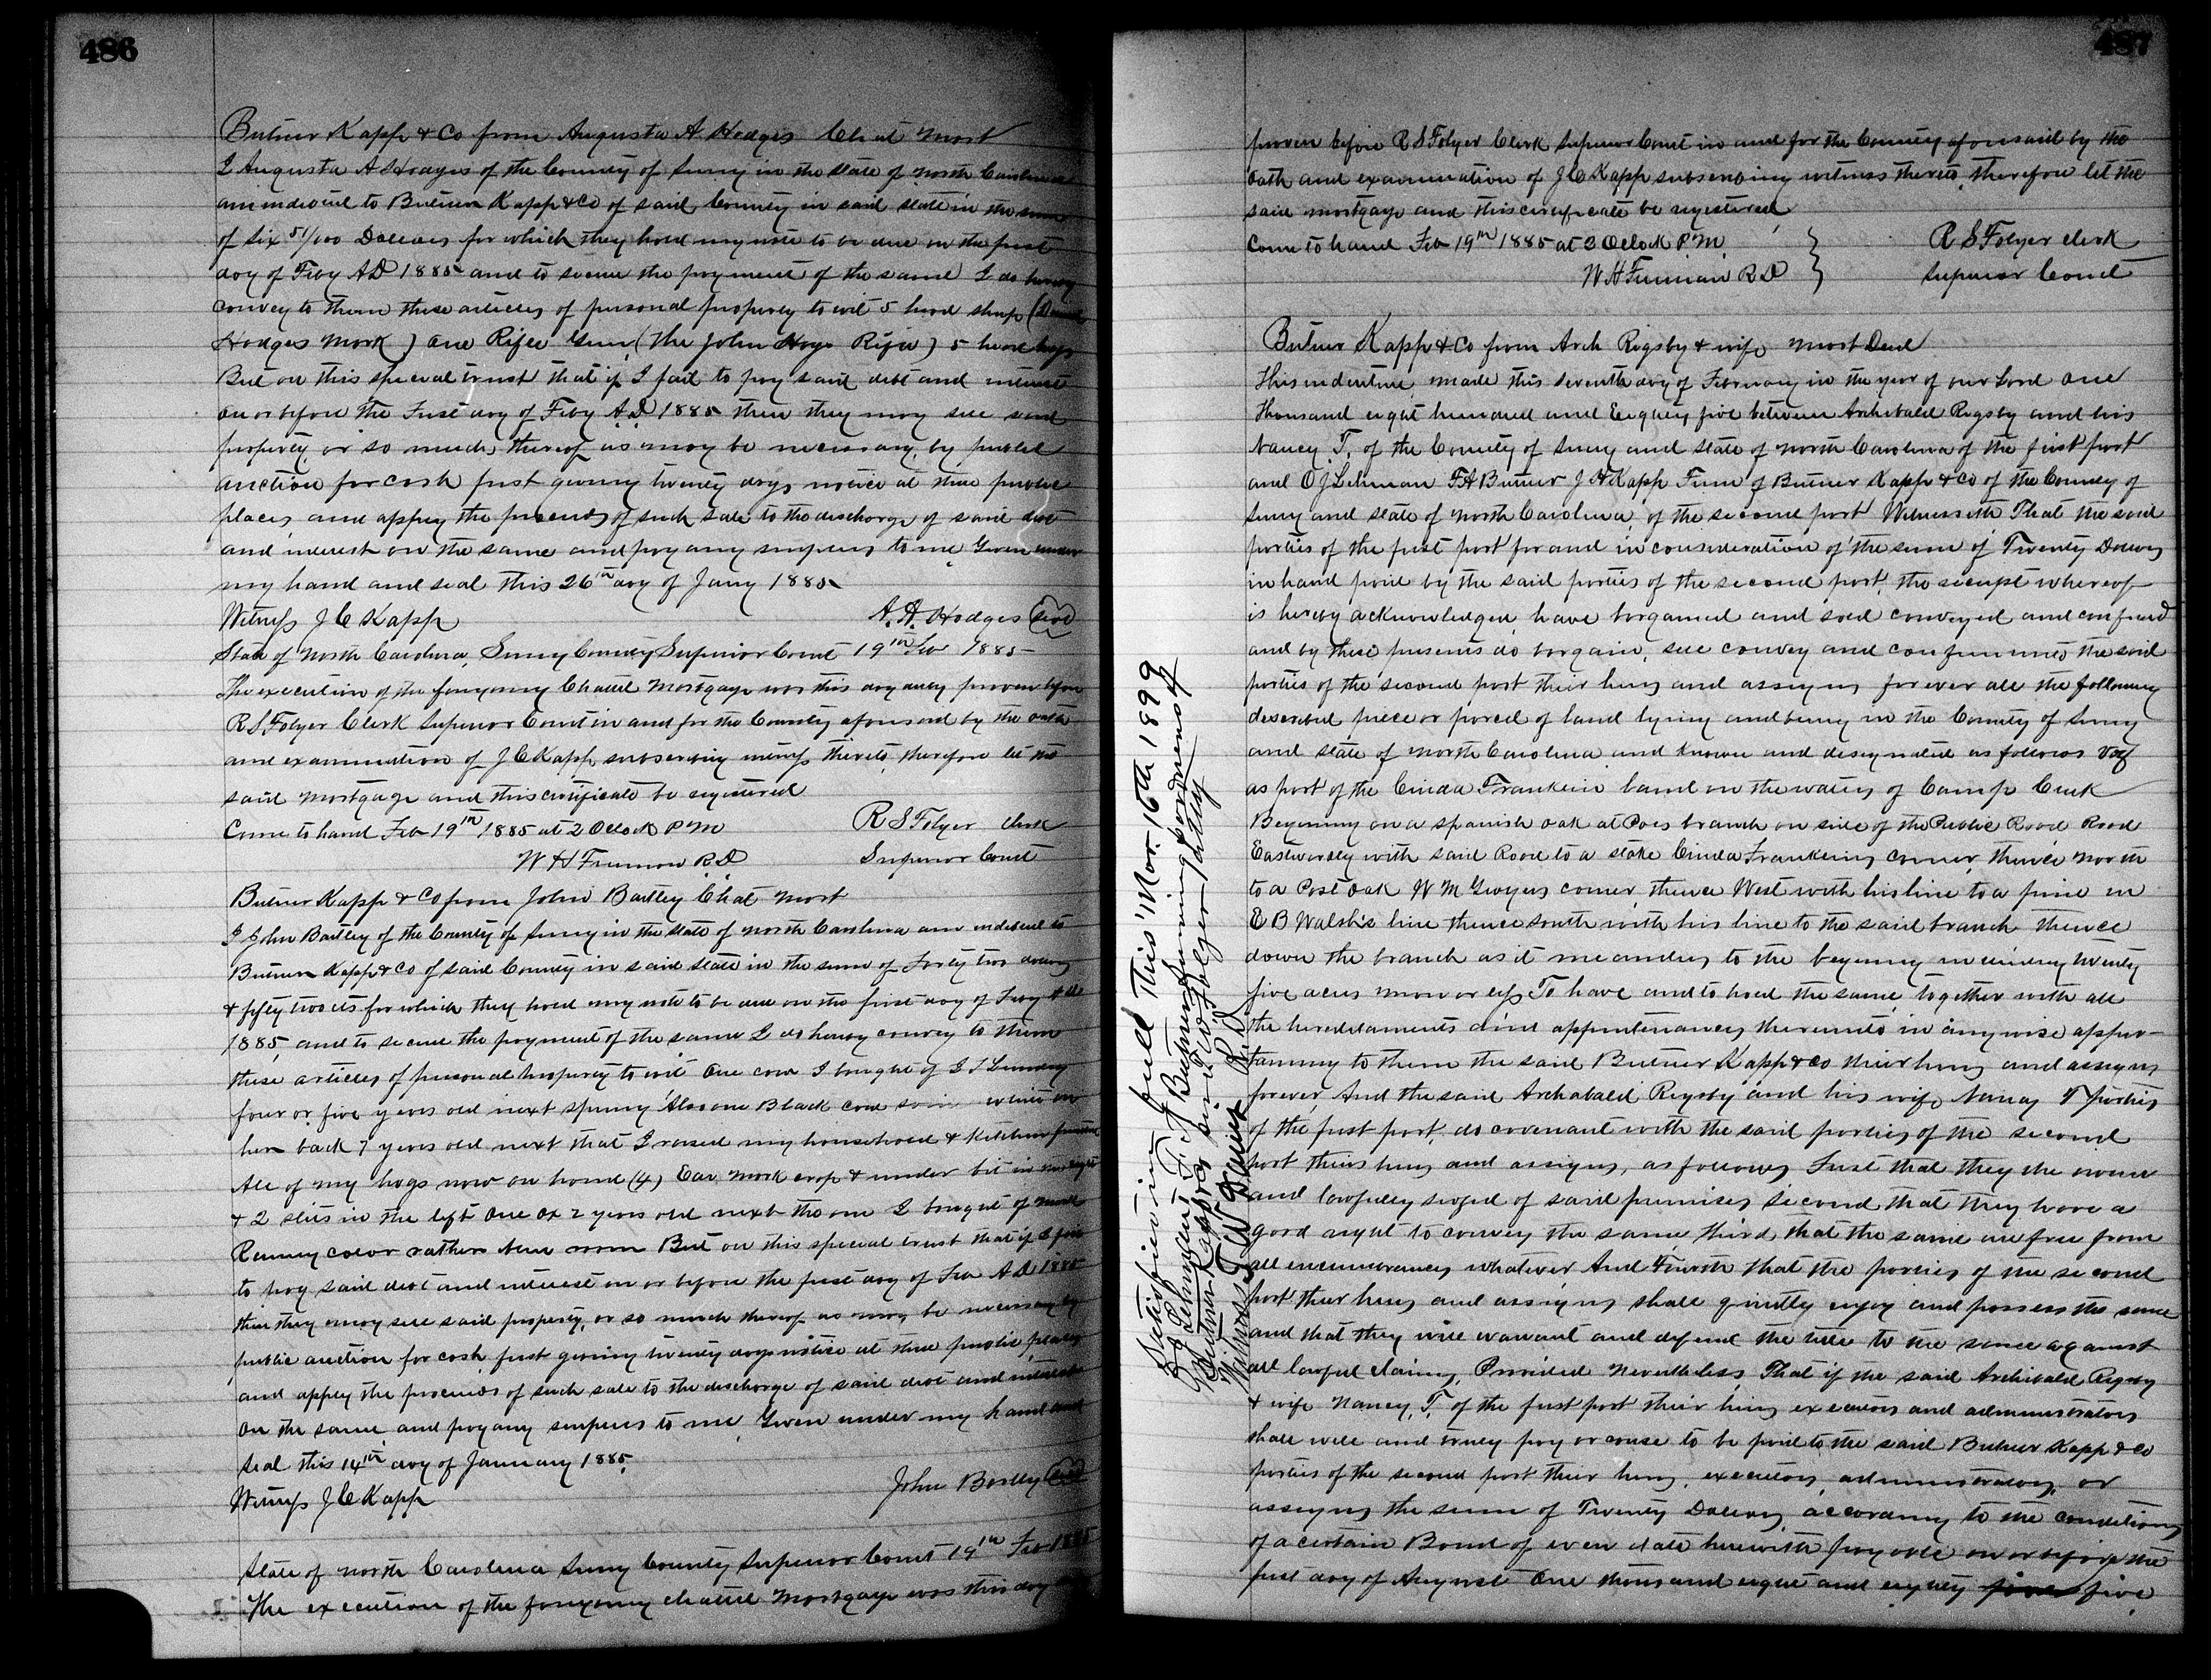 486
Butner Kapp & Co from Augusta A Hodges Chat Mort
I Augusta A Hodges of the County of Surry in the State of North Carolina
am indebted to Butner Kapp & Co of said County in said State in the sum
of six 51/100 Dollars for which they hold my note to be due on the first
day of Feby AD 1885 and to secure the payment of the same I do hereby
convey to them these articles of personal property to wit 5 head sheep (
Hodges Mark) one Rifle Gun (the John Rifle) 5 head hogs
But on this special trust that if I fail to pay said debt and interest
on or before the First day of Feby A.D 1885 then they may sell said
property or so much thereof as may be necessary by public
auction for cash first giving twenty days notice at three public
places and apply the proceeds of such sale to the discharge of said debt
and interest on the same and pay any surplus to me Given under
my hand and seal this 26th day of Jany 1885
Witness J C Kapp A. A. Hodges seal
State of North Carolina, Surry County Superior Court 19th Feb 1885
The execution of the foregoing Chattel Mortgage was this day duly proven before
R S Folger Clerk Superior Court in and for the County aforesaid by the oath
and examination of J C Kapp subscribing witness thereto therefore let the
said mortgage and this certificate be registered
Come to hand Feb 19th 1885 at 2 Oclock PM R S Folger clerk
W H Freeman R.D. Superior Court
Butner Kapp & Co from John Bartley Chat Mort
I John Bartley of the County of Surry in the State of North Carolina am indebted to
Butner Kapp & Co of said County in said State in the sum of Forty two dollars
& fifty two cts for which they hold my note to be due on the first day of Feby
1885, and to secure the payment of the same I do hereby convey to them
these articles of personal property to wit One cow I bought of
four or five years old next spring Also one Black cow some white on
her back 7 years old next that I raised my household & kitchen
All of my hogs now on hand (4) Ear mark crop & under bit in
& 2 slits in the left One ox 2 years old next the one I bought of
color rather But on this special trust that if I fail
to pay said debt and interest on or before the first day of Feb AD 1885
then they may sell said property, or so much thereof as may be necessary by
public auction for cash first giving twenty days notice at three public places
and apply the proceeds of such sale to the discharge of said debt and interest
on the same and pay any surplus to me Given under my hand and
seal this 14th day of January 1885
Witness J C Kapp John Bartley seal
State of North Carolina Surry County Superior Court 19th Feb 1885
The execution of the foregoing chattel mortgage was this day
487
proven before R S Folger Clerk Superior Court in and for the County aforesaid by the
oath and examination of J C Kapp subscribing witness thereto therefore let the
said mortgage and this certificate be registered
Come to hand Feb 19th 1885 at 2 Oclock P.M R S Folger clerk
W H Freeman R D Superior Court
Butner Kapp & Co from Arch Rigsby & wife Mort Deed
This indenture made this seventh day of February in the year of our Lord One
Thousand eight hundred and Eighty five between Archibald Rigsby and his
Nancy T. of the County of Surry and State of North Carolina of the first part
and O J Lehman F A Butner J H Kapp Firm of Butner Kapp & Co of the County of
Surry and State of North Carolina, of the second part Witnesseth That the said
parties of the first part for and in consideration of the sum of Twenty Dollars
in hand paid by the said parties of the second part, the receipt whereof
is hereby acknowledged have bargained and sold conveyed and confirmed
and by these presents do bargain, sell convey and confirm unto the said
parties of the second part their heirs and assigns forever all the following
described piece or parcel of land lying and being in the County of Surry
and State of North Carolina and known and designated as follows viz
as part of the Cinda Franklin land on the waters of Camp Creek
Beginning on a spanish oak at Poes branch on side of the Public Road Road
Eastwardly with said Road to a stake Cinda Franklins corner, thence North
to a Post Oak W M corner, thence West with his line, to a pine in
E B Walsh's line thence south with his line to the said branch thence
down the branch as it meanders to the beginning including twenty
five acres more or less To have and to hold the same, together with all
the hereditaments and appurtenances thereunto in anywise apper-
taining to them the said Butner Kapp & Co their heirs and assigns
forever, And the said Archabald Rigsby and his wife Nancy T parties
of the first part, do covenant with the said parties of the second
part their heirs and assigns, as follows First that they are owners
and lawfully seized of said premises Second that they have a
good right to convey the same third, that the same are free from
all encumbrances whatever, And Fourth that the parties of the second
part their heirs and assigns shall quietly enjoy and possess the same
and that they will warrant and defend the title to the same against
all lawful claims, Provided Nevertheless That if the said Archibald Rigsby
& wife Nancy, T. of the first part their heirs executors and administrators
shall well and truly pay or cause to be paid to the said Butner Kapp & Co
parties of the second part their heirs, executors, administrators, or
assigns the sum of Twenty Dollars according to the conditions
of a certain Bond of even date herewith payable on or before the
first day of August One thousand eight and eighty five
Satisfied in full This Nov. 16th 1899
O J Lehman, F. A Butner surviving partners of
Butner Kapp & Co
Witness
R. D.